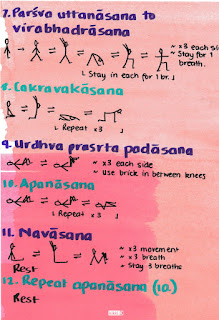 7. Parśva uttanāsana to
virabhadrāsana
~ x3 each side
~ Stay for 1
breath.
L Stay in each for 1 br. ┘
8. Cakravakāsana
L Repeat x3 ┘
9. Urdhva prasrta padāsana
~ x3 each side
~ Use brick in between knees
10. Apanāsana
L Repeat x3 ┘
11. Navāsana
~ x3 movement
~ x3 breath
~ Stay 3 breaths
Rest
12. Repeat apanāsana (10.)
Rest